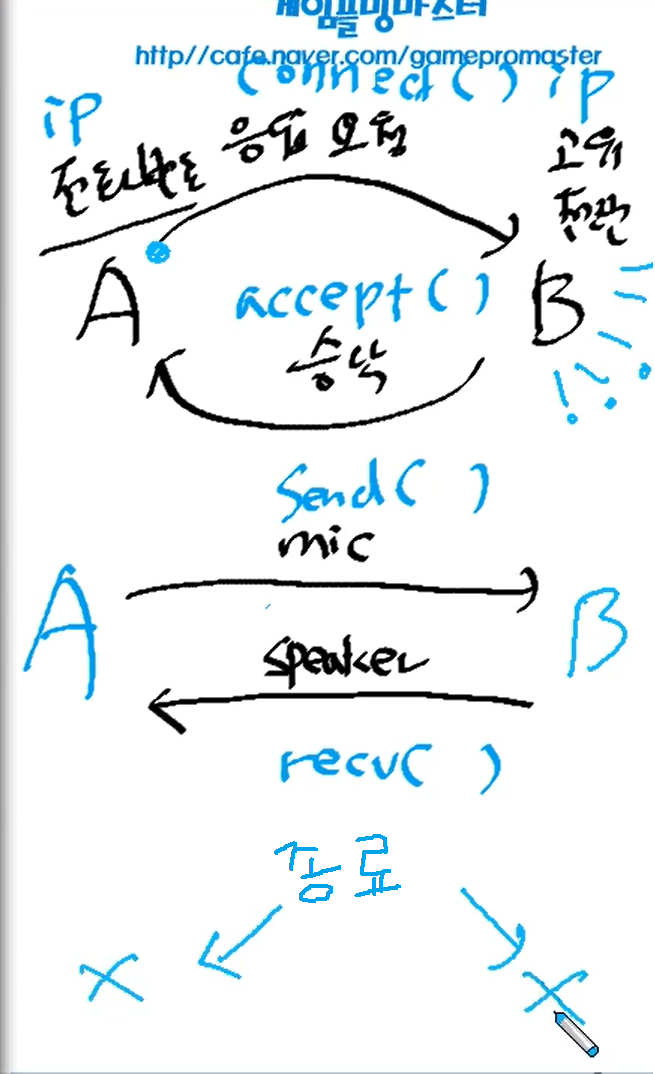 게임플밍마스터
http//cafe.naver.com/gamepromaster
connect ( )
ip
ip
응답 요청
고유
A
B
accept ( )
승낙
Send ( )
mic
A
B
Speaker
recv( )
종료
X
X